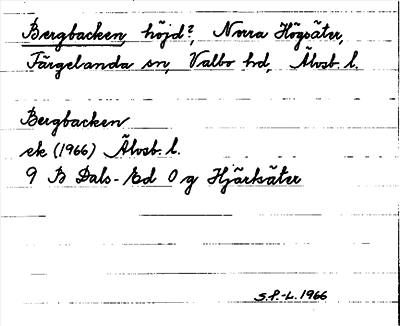 Bergbacken, höjd?, Norra Högsäter,
Färgelanda sn, Valbo hd, Älvsb. l.
Bergbacken
ek (1966) Älvsb. l.
9 B Dals-Ed O g Hjärtsäter
S.P.-L. 1966